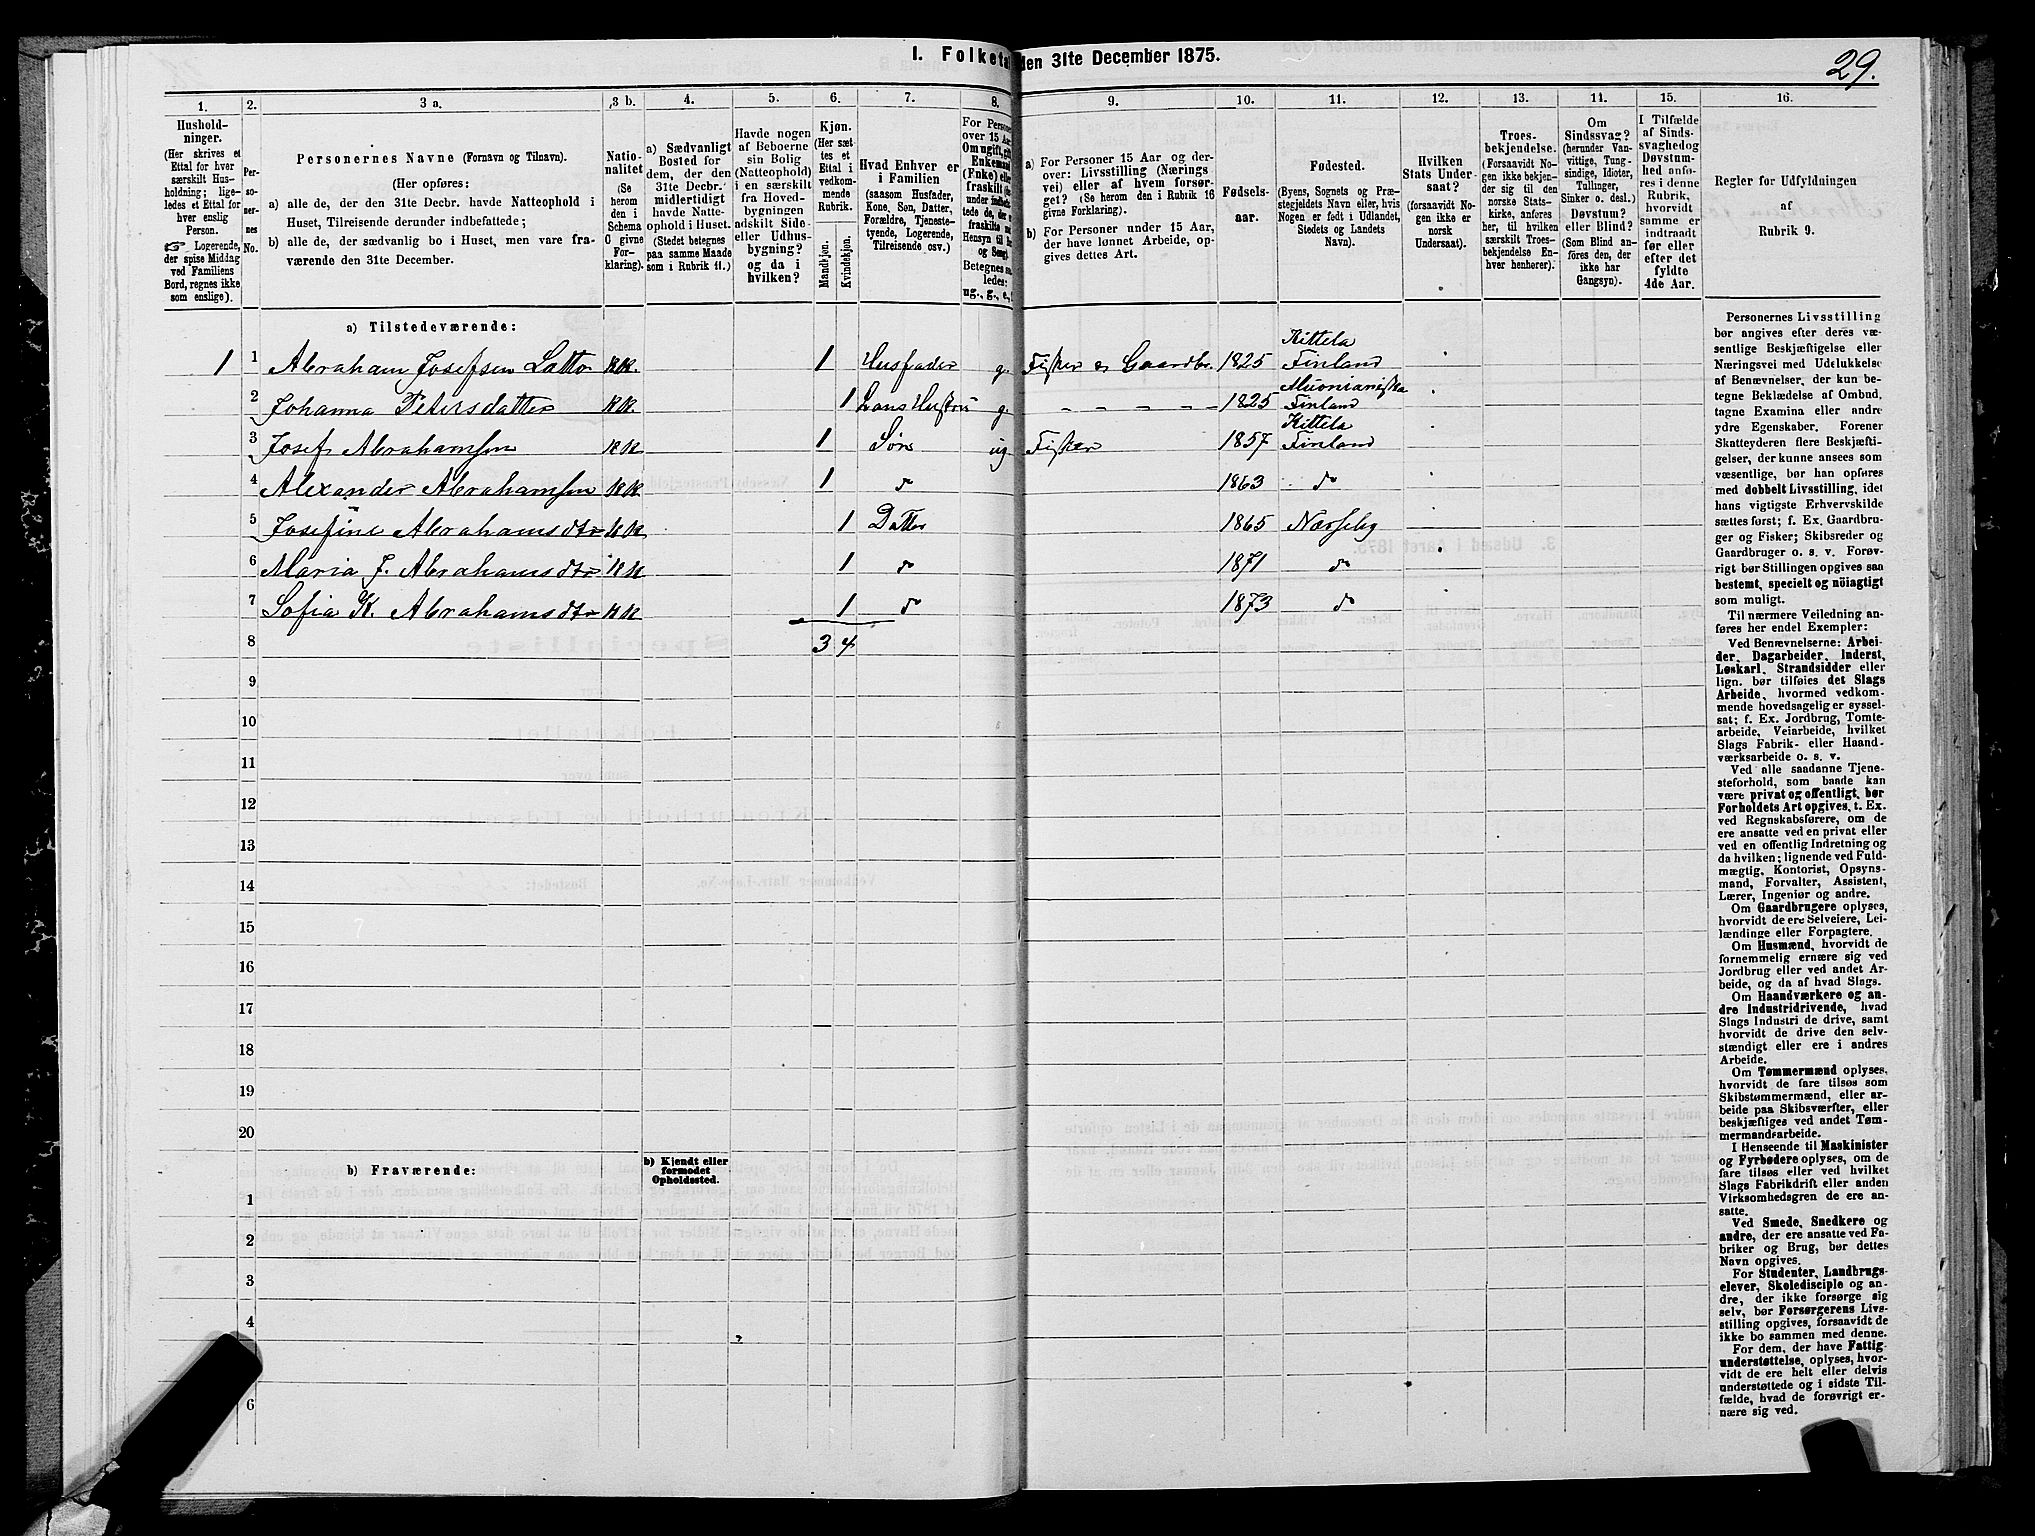 I. Folketal den 31te December 1875.
29.
1. 2. 3 a. 3 b. 4. 5. 6. 7. 8. 9. 10. 11. 12. 13. 14. 15. 16.
Hushold-
ninger.
(Her skrives et
Ettal for hver
særskilt Hus-
holdning; lige-
ledes et Ettal for
hver enslig
Person.
☞ Logerende,
der spise Middag
ved Familiens
Bord, regnes ikke
som enslige).
Per-
so-
ner-
nes
No.
Personernes Navne (Fornavn og Tilnavn).
(Her opføres:
a) alle de, der den 31te Decbr. havde Natteophold i
Huset, Tilreisende derunder indbefattede;
b) alle de, der sædvanlig bo i Huset, men vare fra-
værende den 31te December.
Natio-
nalitet
(Se
herom
den i
Schema
O givne
For-
klaring).
a) Sædvanligt
Bosted for
dem, der den
31te Decbr.
midlertidigt
havde Natte-
ophold i Huset.
(Stedet betegnes
paa samme Maade
som i Rubrik 11.)
Havde nogen
af Beboerne
sin Bolig
(Natteophold)
i en særskilt
fra Hoved-
bygningen
adskilt Side-
eller Udhus-
bygning?
og da i
hvilken?
Kjøn.
(Her sæt-
tes et
Ettal i
vedkom-
mende
Rubrik.
Mandkjøn.
Kvindekjøn.
Hvad Enhver er
i Familien
(saasom Husfader,
Kone, Søn, Datter,
Forældre, Tjeneste-
tyende, Logerende,
Tilreisende osv.)
For Personer
over 15 Aar
Om ugift, gift
Enkemand
(Enke) eller
fraskilt
Betegnes saa-
ledes:
ug., g., e.,
a) For Personer 15 Aar og der-
over: Livsstilling (Nærings
vei) eller af hvem forsør-
get? (Se herom den i Rubrik 16
givne Forklaring).
b) For Personer under 15 Aar,
der have lønnet Arbeide, op-
gives dettes Art.
Fødsels-
aar.
Fødested.
(Byens, Sognets og Præ-
stegjeldets Navn eller, hvis
Nogen er født i Udlandet,
Stedets og Landets
Navn).
Hvilken
Stats Under-
saat?
(forsaavidt No-
gen ikke er
norsk
Undersaat).
Troes-
bekjendelse.
(Forsaavidt No-
gen ikke bekjen-
der sig til den
norske Stats-
kirke, anføres
her, til hvilken
særskilt Troes-
bekjendelse En-
hver henhører).
Om
Sindssvag?
(herunder Van-
vittige, Tung-
sindige, Idioter,
Tullinger,
Sinker o. desl.)
Døvstum?
eller Blind?
(Som Blind an-
føres den, der
ikke har
Gangsyn).
I Tilfælde
af Sinds-
svaghed og
Døvstum-
hed anfø-
res i denne
Rubrik,
hvorvidt
samme er
indtraadt
før eller
efter det
fyldte
4de Aar.
Regler for Udfyldningen
af
Rubrik 9.
a) Tilstedeværende:
1 1 Abraham Josefsen Latto 1 Husfader g. Fisker og Gaardbr. 1825 Kittela Finland
2 Johanna Petersdatter 1 Hans Hustru g. - - - - - 1825 Muonianiska Finland
3 Josef Abrahamsen 1 Søn ug Fisker 1857 Kittela Finland
4 Alexander Abrahamsen 1 do 1863 do
5 Josefine Abrahamsdtr 1 Datter 1865 Næsseby
6 Maria J. Abrahamsdtr 1 do 1871 do
7 Sofia K. Abrahamsdtr 1 do 1873 do
8 3 4
9
10
11
12
13
14
15
16
17
18
19
20
b) Fraværende:
b) Kjendt eller
formodet
Opholdssted.
1
2
3
4
5
6
Personernes Livsstilling
bør angives efter deres væ-
sentlige Beskjæftigelse eller
Næringsvei med Udelukkelse
af Benævnelser, der kun be-
tegne Beklædelse af Ombud,
tagne Examina eller andre
ydre Egenskaber. Forener
Skatteyderen flere Beskjæfti-
gelser, der kunne ansees som
væsentlige, bør han opføres
med dobbelt Livsstilling, idet
hans vigtigste Erhvervskilde
sættes først; f. Ex. Gaardbru-
ger og Fisker; Skibsreder og
Gaardbruger o. s. v. Forøv-
rigt bør Stillingen opgives saa
bestemt, specielt og nöiagtigt
som muligt.
Til nærmere Veiledning an-
føres her endel Exempler:
Ved Benævnelserne: Arbei-
der, Dagarbeider, Inderst,
Løskarl, Strandsidder eller
lign. bør tilføies det Slags
Arbeide, hvormed vedkom-
mende hovedsagelig er syssel-
sat; f. Ex. Jordbrug, Tomte-
arbeide, Veiarbeide, hvilket
Slags Fabrik- eller Haand-
værksarbeide o. s. v.
Ved alle saadanne Tjene-
steforhold, som baade kan
være privat og offentligt, bør
Forholdets Art opgives, t. Ex.
ved Regnskabsførere, om de
ere ansatte ved en privat eller
ved en offentlig Indretning og
da hvilken; lignende ved Fuld-
mægtig, Kontorist, Opsyns-
mand, Forvalter, Assistent,
Lærer, Ingeniør og andre.
Om Gaardbrugere oplyses,
hvorvidt de ere Selveiere, Lei-
lændinge eller Forpagtere.
Om Husmænd, hvorvidt de
fornemmelig ernære sig ved
Jordbrug eller ved andet Ar-
beide, og da af hvad Slags.
Om Haandværkere og an-
dre Industridrivende, hvad
Slags Industri de drive, samt
hvorvidt de drive den selv-
stændigt eller ere i andres
Arbeide.
Om Tømmermænd oplyses,
hvorvidt de fare tilsøs som
Skibstømmermænd, eller ar-
beide paa Skibsværfter, eller
beskjæftiges ved andet Tøm-
mermandsarbeide.
I Henseende til Maskinister
og Fyrbødere oplyses, om de
fare tilsøs eller ved hvilket
Slags Fabrikdrift eller anden
Virksomhedsgren de ere an-
satte.
Ved Smede, Snedkere og
andre, der ere ansatte ved Fa-
briker og Brug, bør dettes
Navn opgives.
For Studenter, Landbrugs-
elever, Skoledisciple og an-
dre, der ikke forsørge sig
selv, bør Forsørgerens Livs-
stilling opgives, forsaavidt de
ikke bo sammen med denne.
For dem, der have Fattig-
understøttelse, oplyses, hvor-
vidt de ere helt eller delvis
understøttede og i sidste Til-
fælde, hvad de forøvrigt er-
nære sig ved.